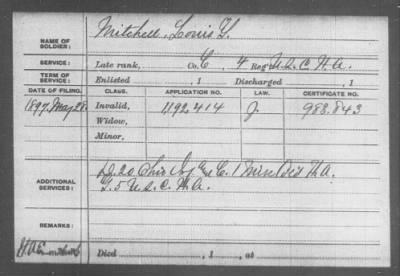 NAME OF SOLDIER: Mitchell, Louis Y.
SERVICE: Late rank, Co. C, 4 Reg't U.S.C.H.A.
TERM OF SERVICE: Enlisted , 1 Discharged , 1
DATE OF FILING. CLASS. APPLICATION NO. LAW. CERTIFICATE NO.
1897. May 28 Invalid, 1192.414 J. 983.843
Widow,
Minor,
ADDITIONAL SERVICES: D. 20 Ohio Inf & C. 1 H.A.
5 U.S.C.H.A.
REMARKS:
Died , 1 , at